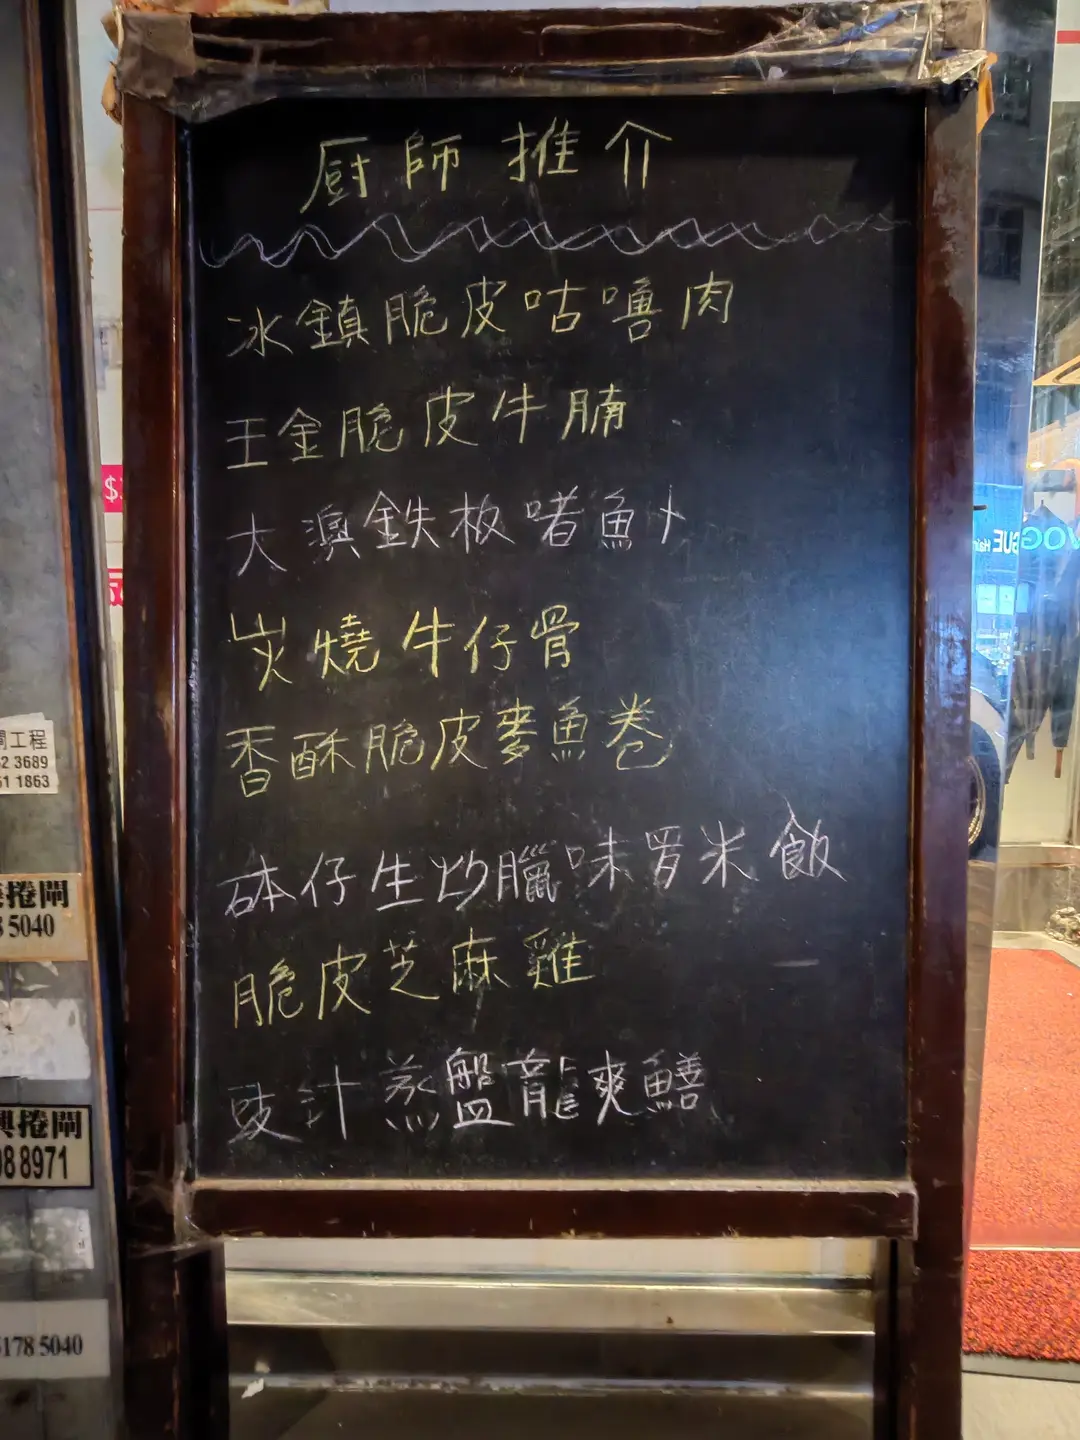 厨師推介
冰鎮脆皮咕嚕肉
王金脆皮牛腩
大澳鉄板啫魚卜
炭燒牛仔骨
香酥脆皮麥魚卷
砵仔生炒臘味罗米飯
脆皮芝麻雞
豉汁蒸盤龍爽鱔
工程
3689
1863
捲閘
5040
捲閘
8971
178 5040
VOGUE Hair